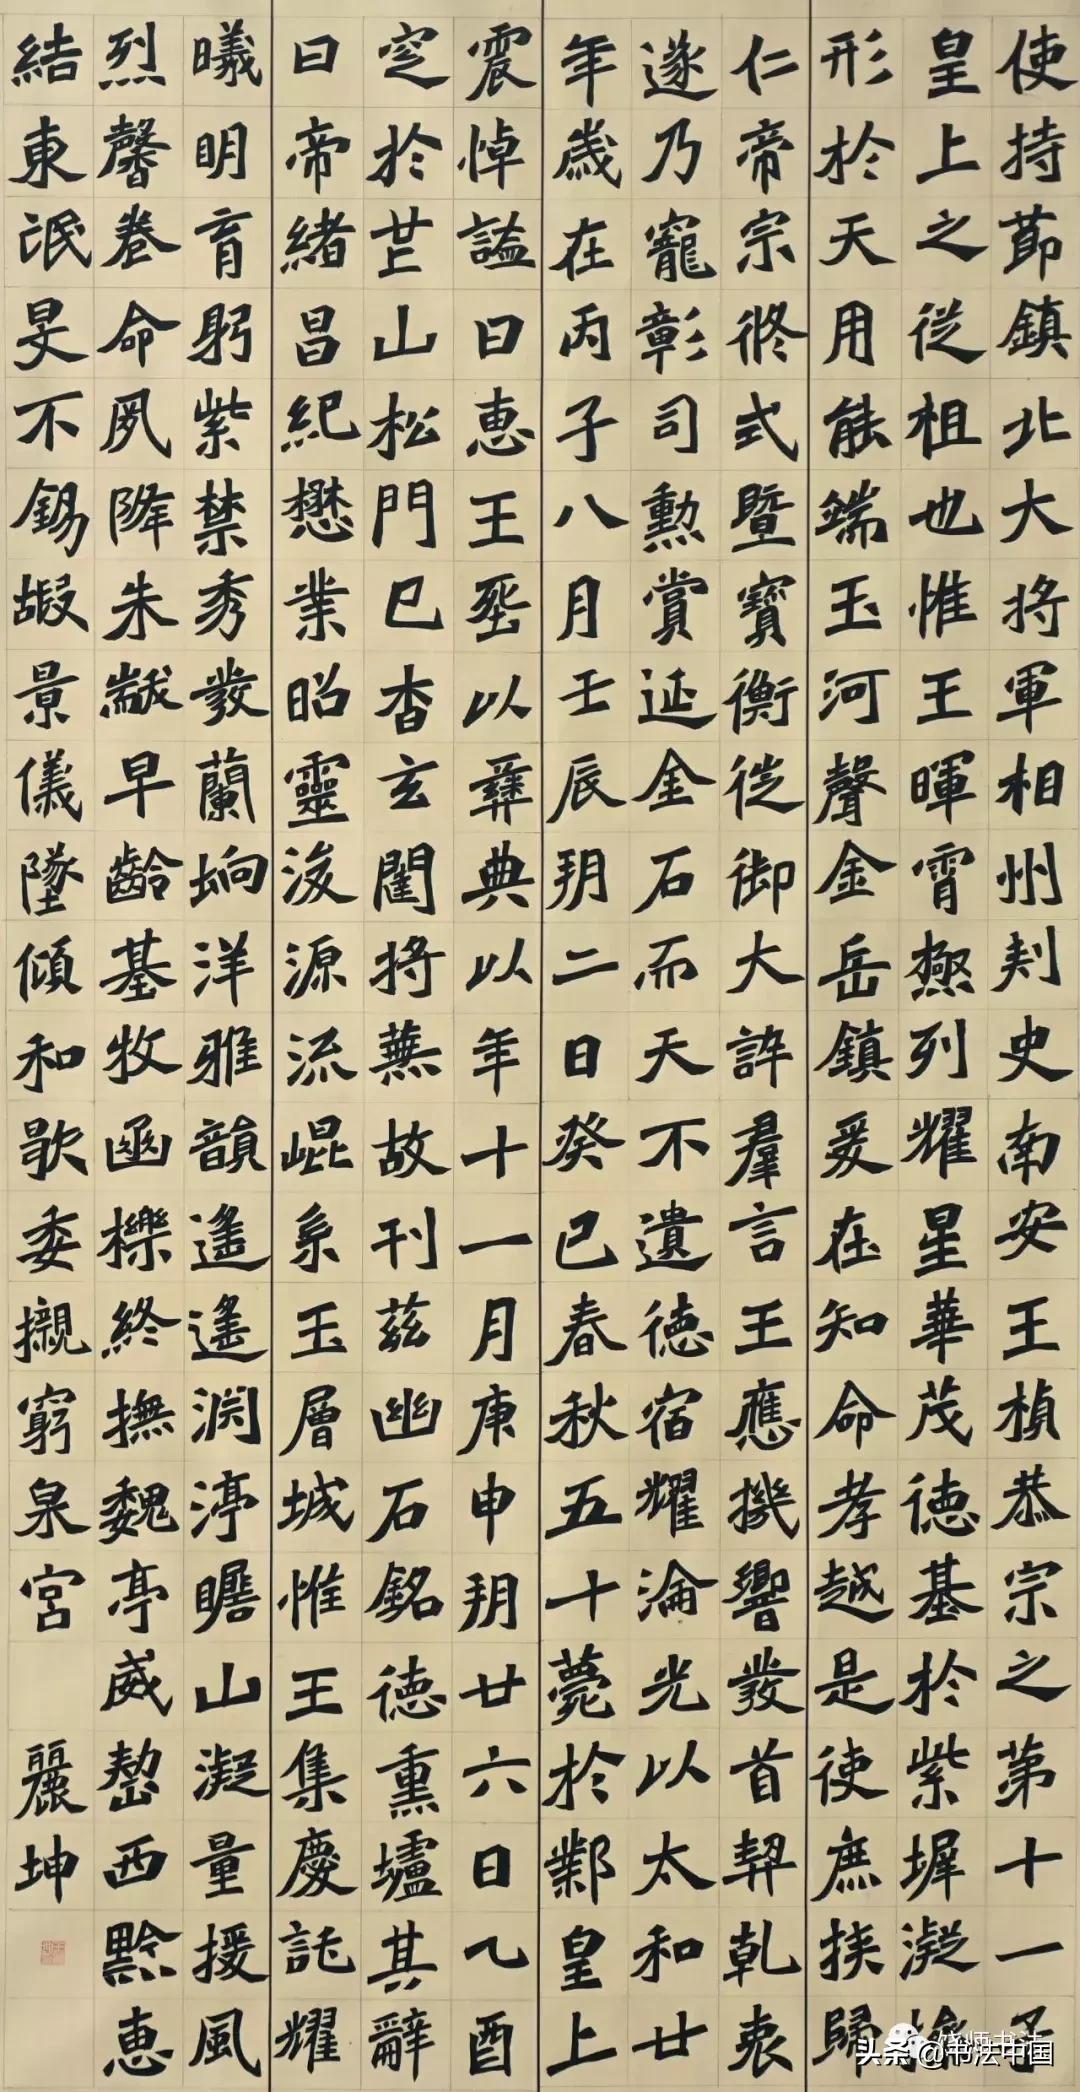 使持節鎮北大將軍相州刺史南安王楨恭宗之第十一子
皇上之從祖也惟王暉霄極列耀星華茂德基於紫墀凝操
形於天用能端玉河聲金岳鎮爰在知命孝越是使庶族歸
仁帝宗攸式暨寶衡徙御大訏羣言王應機響發首契乾衷
遂乃寵彰司勳賞延金石而天不遺德宿耀淪光以太和廿
年歲在丙子八月壬辰朔二日癸巳春秋五十薨於鄴皇上
震悼謚曰惠王塟以彝典以年十一月庚申朔廿六日乙酉
窆於芒山松門巳杳玄闈將蕪故刊兹幽石銘德熏壚其辭
曰帝緒昌紀懋業昭靈浚源流崐系玉層城惟王集慶託耀
曦明育躬紫禁秀發蘭坰洋雅韻遥遥淵渟瞻山凝量援風
烈馨卷命夙降朱黻早齡基牧函櫟終撫魏亭威整西黔惠
結東氓旻不錫嘏景儀墜傾和歌委櫬窮泉宮
麗坤
头条 @书法中国